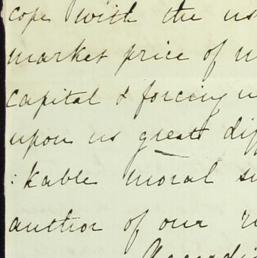 cope with the us
market price of
capital & forcing
upon us great dif
:kable moral su
author of our